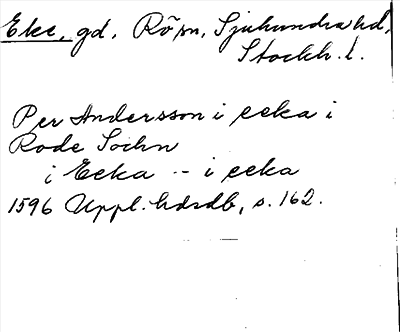 Eke, gd, Rö sn, Sjuhundra hd,
Stockh. l.
Per Andersson i ecka i
Rode Sochn
i Ecka -- i ecka
1596 Uppl. hdrdb, s. 162.